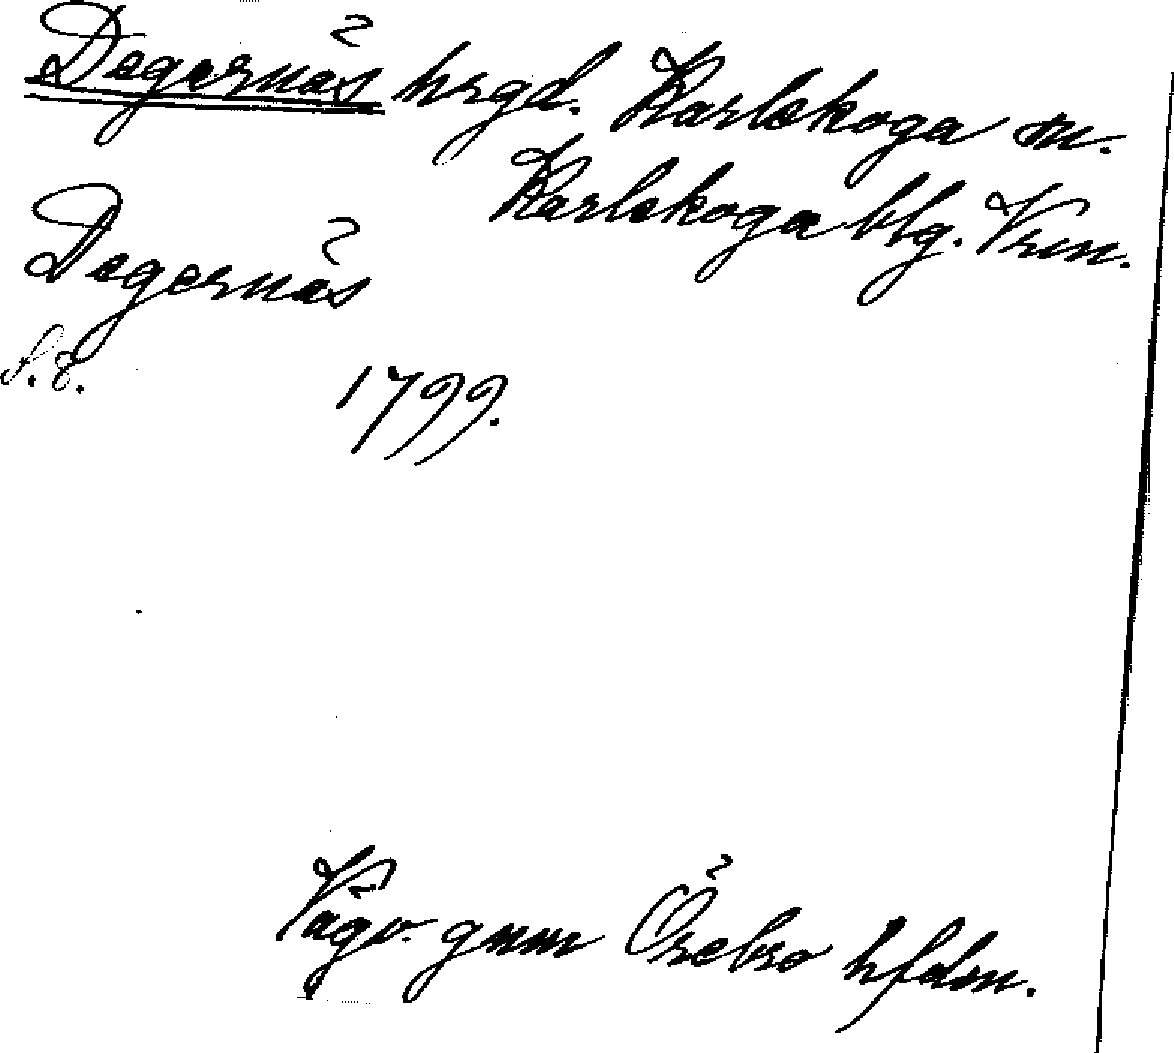 Degernäs hrgd. Karlskoga sn.
Karlskoga blg. Vrm.
Degernäs
S.E.
1799.
Vägv. gnm Örebro hfdm.